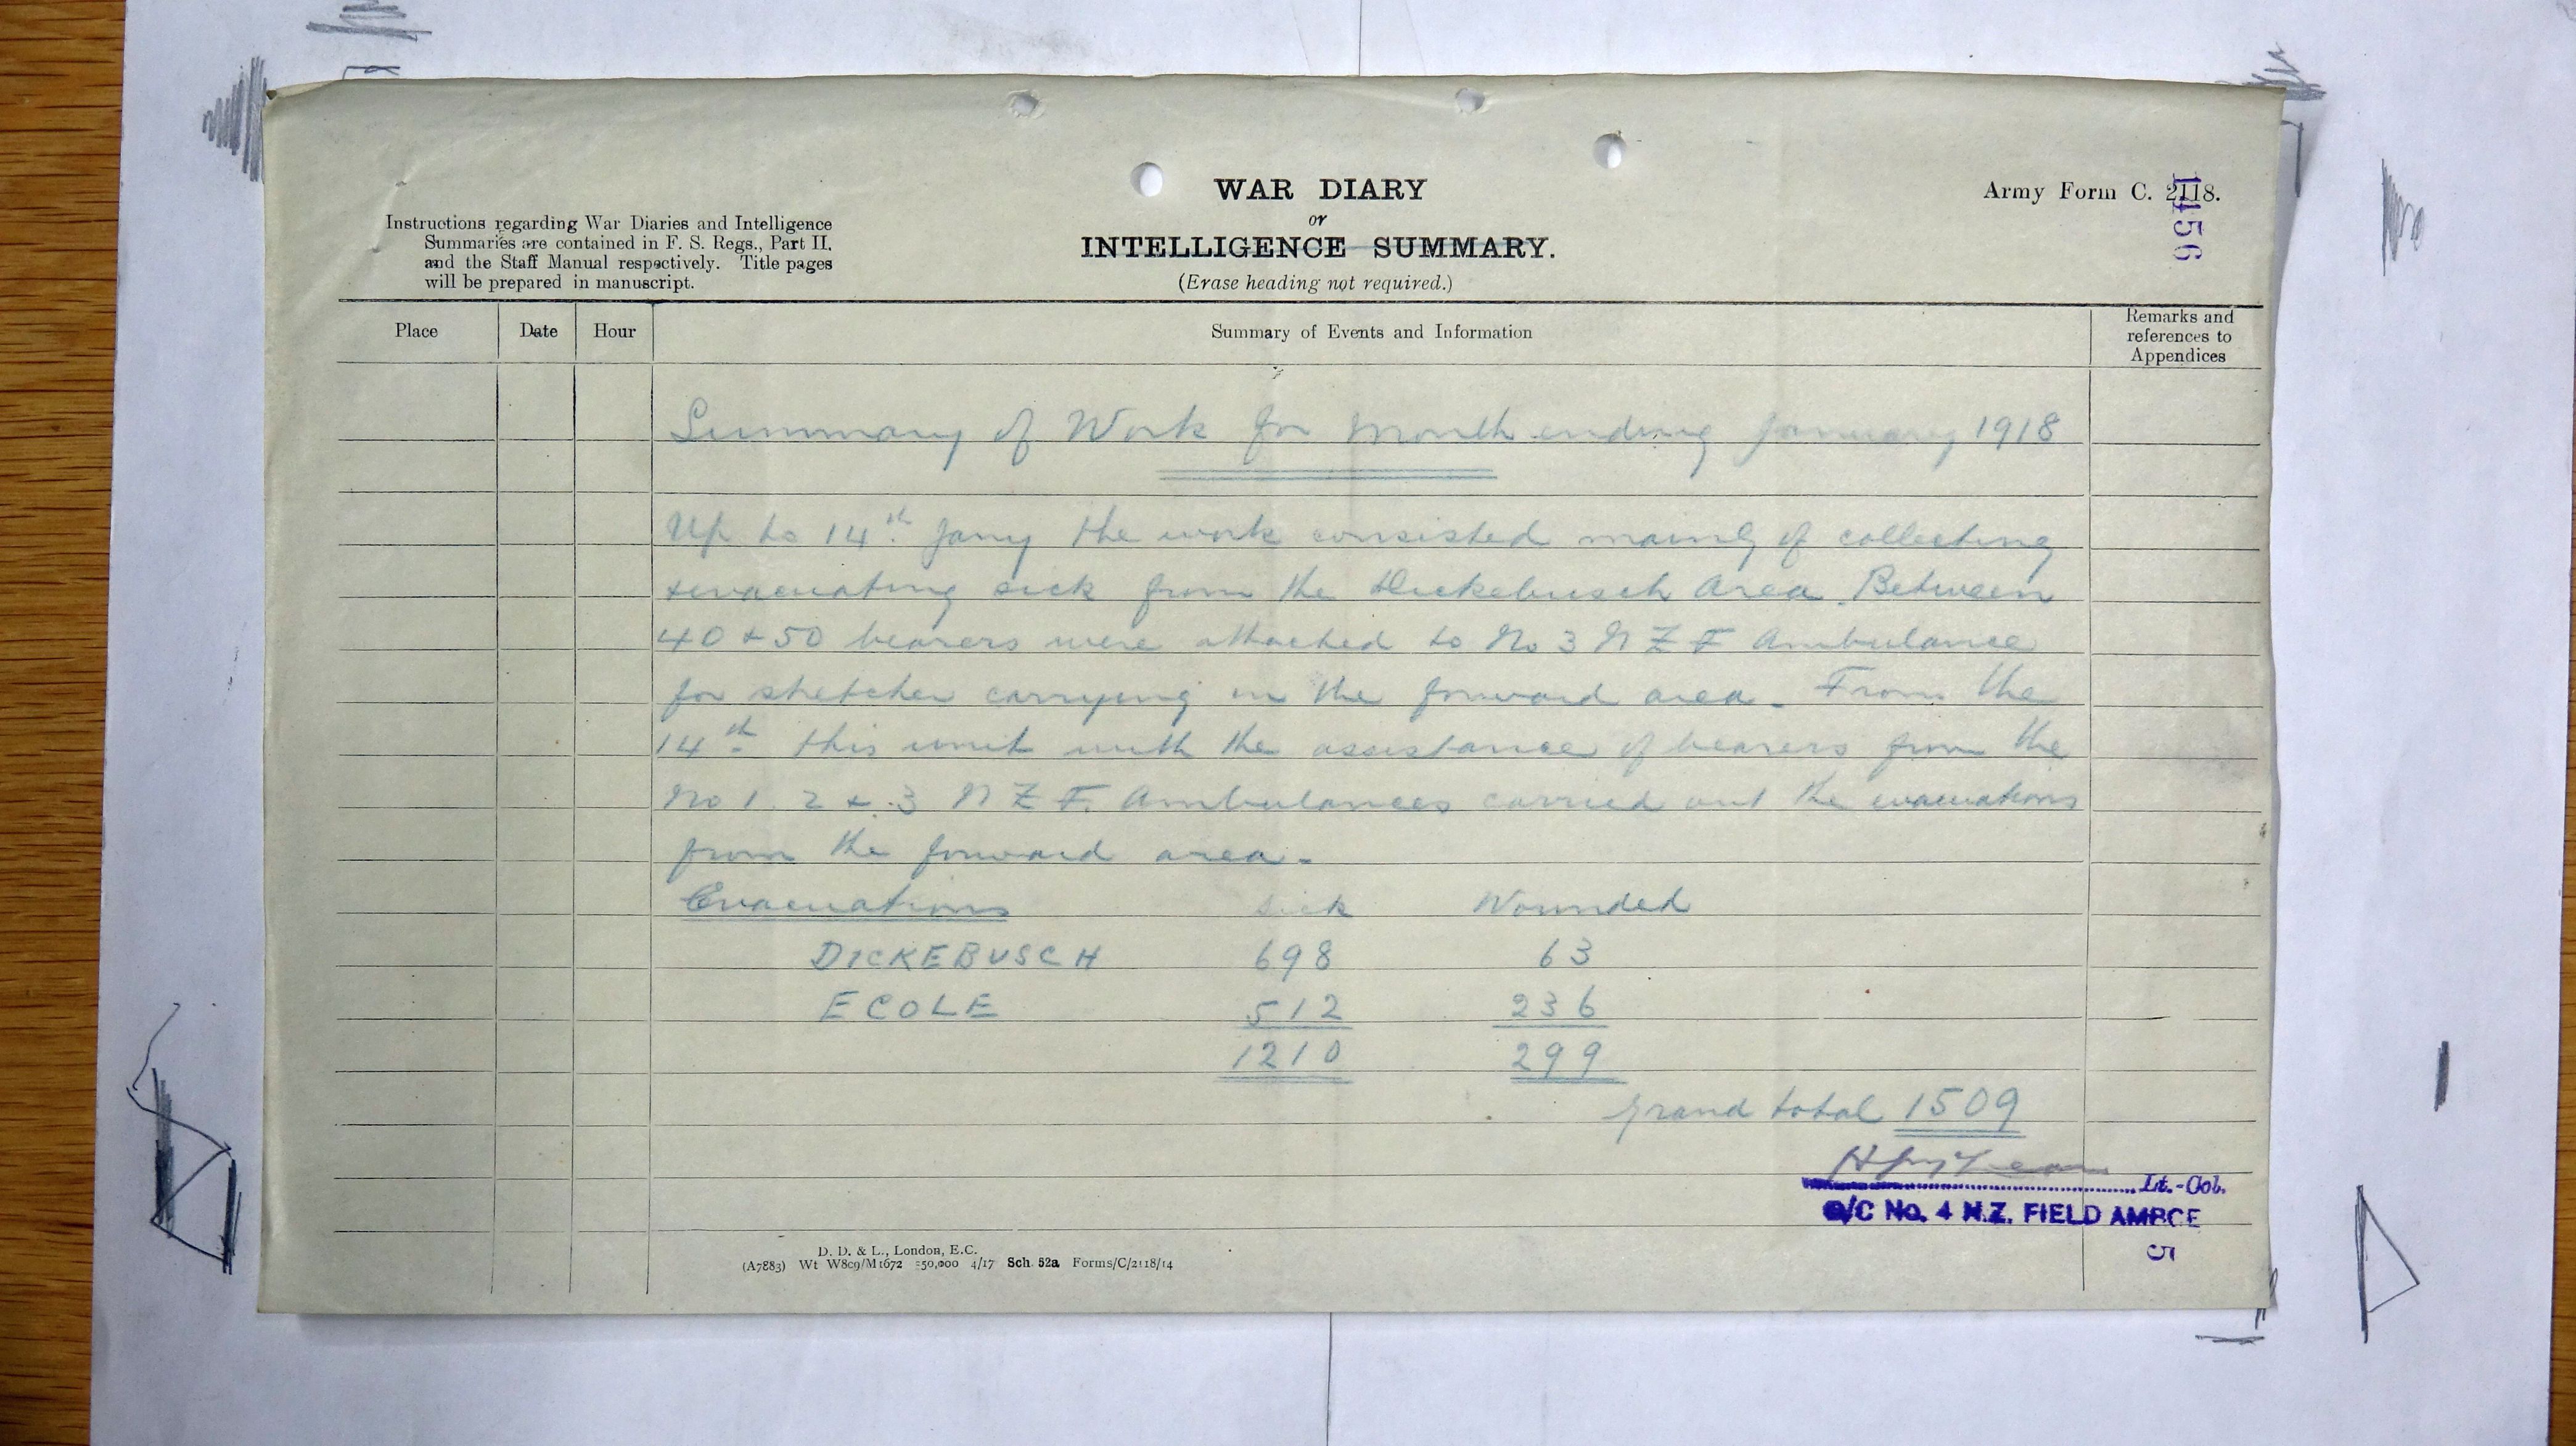 WAR DIARY
or
INTELLIGENCE SUMMARY.
(Erase heading not required.)
Army Form C. 2118.
1456
Instructions regarding War Diaries and Intelligence
Summaries are contained in F. S. Regs., Part II.
and the Staff Manual respectively. Title pages
will be prepared in manuscript.
Place Date Hour Summary of Events and Information Remarks and references to Appendices
Summary of Work for Month ending January 1918
Up to 14th Jany the work consisted mainly of collecting
& evacuating sick from the Dickebusch Area. Between
40 & 50 bearers were attached to No 3 N Z F Ambulance
for stretcher carrying in the forward area. From the
14th this unit with the assistance of bearers from the
No 1. 2 & 3 N Z F. Ambulances carried out the evacuations
from the forward area.
Evacuations Sick Wounded
DICKEBUSCH 698 63
ECOLE 512 236
1210 299
Grand total 1509
Lt.-Col.
O/C No. 4 N.Z. FIELD AMBCE
5
D. D. & L., London, E.C.
(A7883) Wt W809/M1672 350,000 4/17 Sch. 52a Forms/C/2118/14